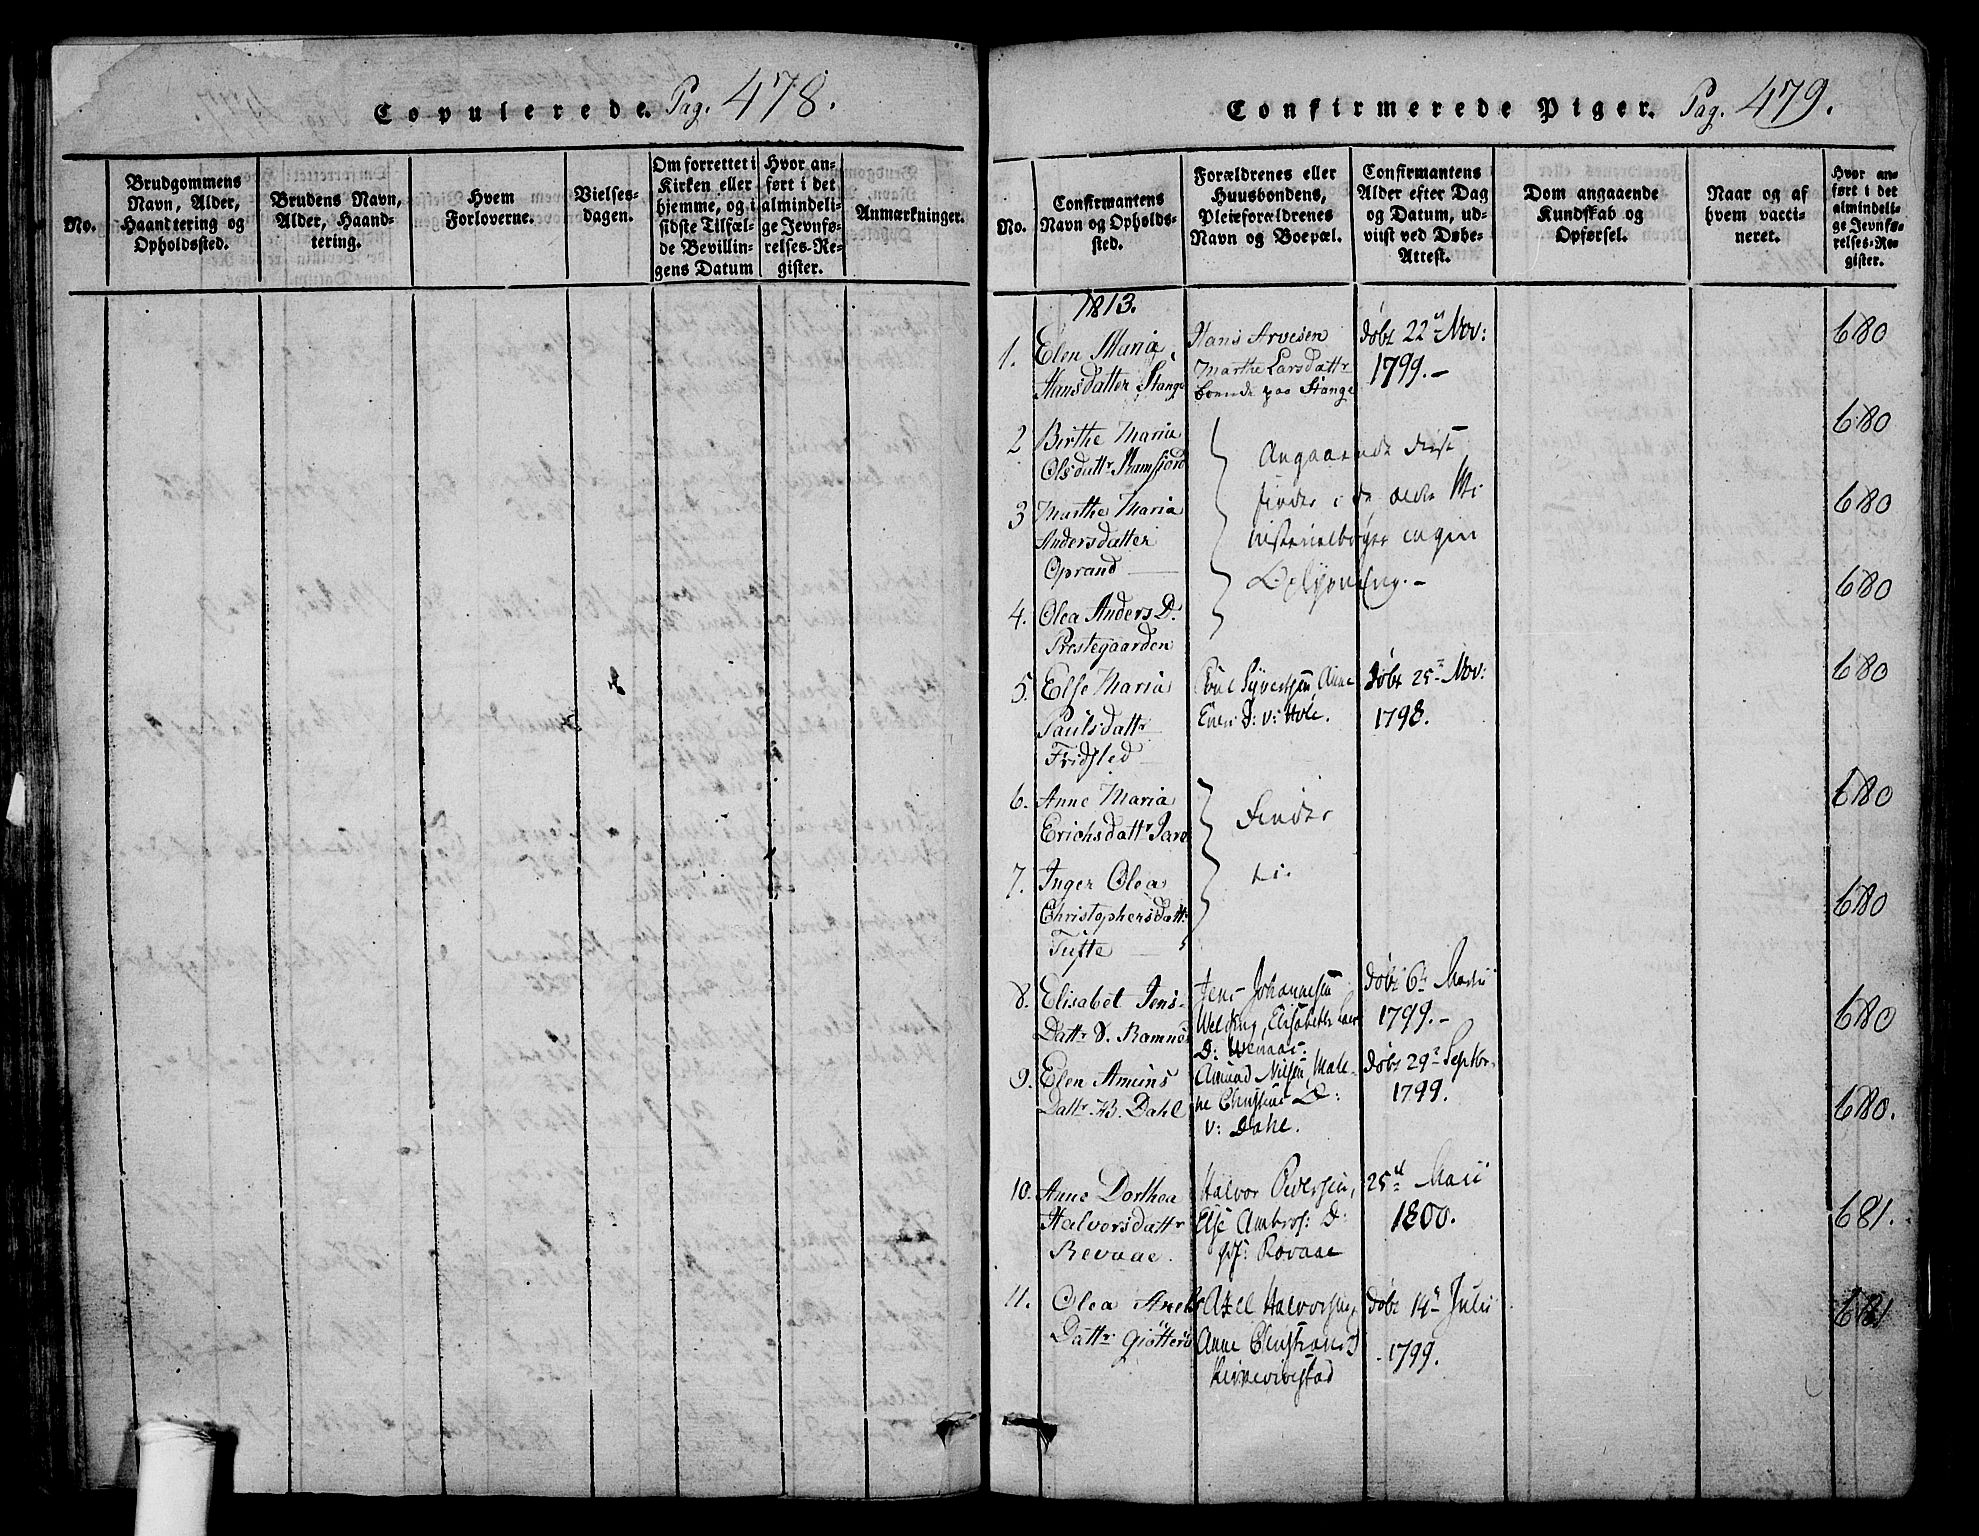 Copulerede. Pag. 478.
No.
Brudgommens
Navn, Alder,
Haandtering og
Opholdssted.
Brudens Navn,
Alder, Haand-
tering.
Hvem
Forloverne.
Vielses-
dagen.
Om forrettet i
Kirken eller
hjemme, og i
sidste Tilfæl-
de Bevillin-
gens Datum
Hvor an-
ført i det
almindeli-
ge Jevnfø-
relses-Re-
gister.
Anmærkninger.
Confirmerede Piger. Pag. 479.
No.
Confirmantens
Navn og Opholds-
sted.
Forældrenes eller
Huusbondens,
Pleieforældrenes
Navn og Boepæl.
Confirmantens
Alder efter Dag
og Datum, ud-
viist ved Døbe-
Attest.
Dom angaaende
Kundskab og
Opførsel.
Naar og af
hvem vacci-
neret.
Hvor an-
ført i det
almindeli-
ge Jevnfø-
relses-Re-
gister.
1813.
1. Elen Maria
Hansdatter Stange
Hans Arvesen
Marthe Larsdattr
boende paa Stange
døbt 22de Nov:
1799.-
680
2 Birthe Maria
Olsdattr Ramsjord
680
3 Marthe Maria
Andersdatter
Oprand
680
4. Olea Anders D.
Prestegaarden
680
Angaaende disse
findes i de ældre Mi
nisterialbøger ingen
Oplysning.-
5. Else Maria
Paulsdattr
Fridsled
Poul Syversen, Anne
D: v: Hole.
døbt 25de Nov:
1798.
680
6. Anne Maria
Erichsdattr
680
7. Inger Olea
Christophersdattr
Tufte
680
Findes
ei.
8. Elisabet Jens-
Dattr V. Ramnes
Jens Johannesen
Welding, Elisabeth Lars
D:
døbt 6te Martii
1799.-
680
9. Elen Amuns
Dattr H. Dahl
Amund Nilsen, Male-
ne Christens D:
v: Dahl.
døbt 29de Septbr.
1799.
680.
10. Anne Dorthea
Halvorsdattr
Revaae.
Halvor Pedersen,
Else Ambros: D:
Rovaae
25de Maii
1800.
681.
11. Olea Axels
Dattr Gjøtterø
Axel Halvorsen,
Anne D
døbt 14de Julii
1799.
681